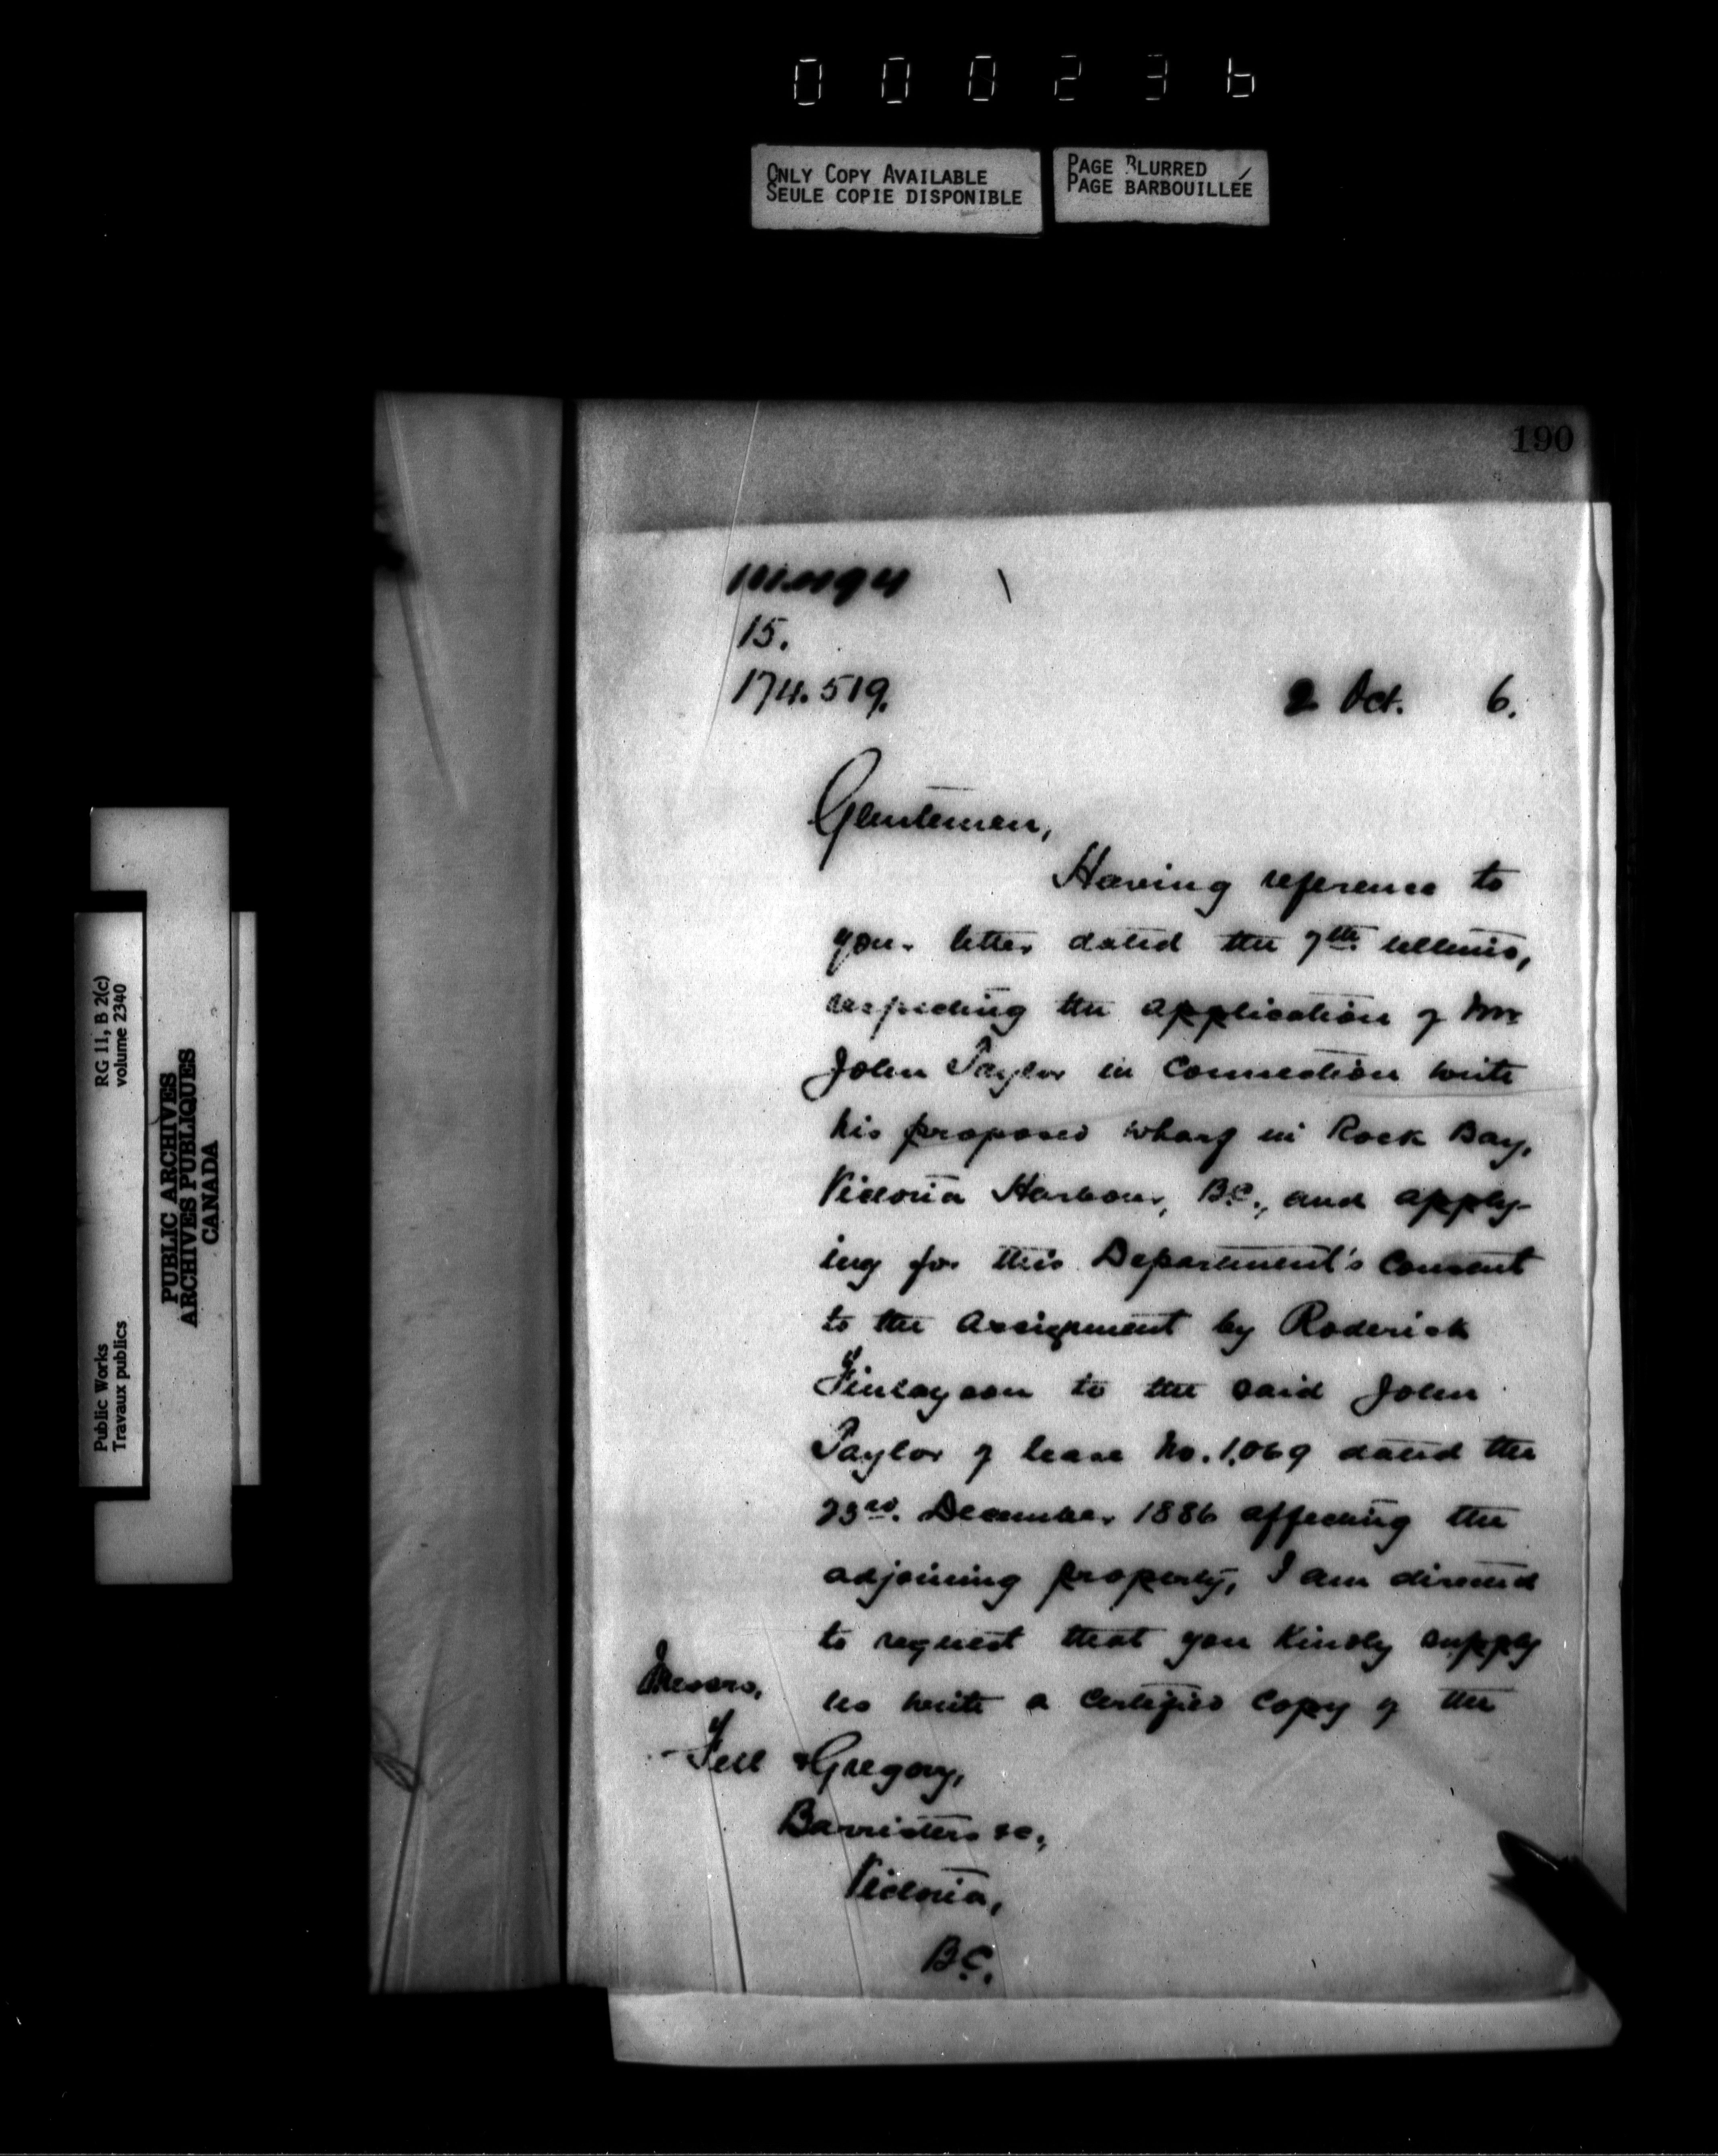 000236
ONLY COPY AVAILABLE
SEULE COPIE DISPONIBLE
PAGE BLURRED
PAGE BARBOUILLÉE
190
15.
174.519.
2 Oct. 6.
Gentlemen,
Having reference to
your letter dated the 7th. ultimo,
respecting the application of Mr
John Taylor in connection with
his proposed wharf in Rock Bay,
Victoria Harbour, B.C., and apply-
ing for this Department's consent
to the assignment by Roderick
Finlayson to the said John
Taylor of lease No. 1,069 dated the
23rd. December 1886 affecting the
adjoining property, I am directed
to request that you kindly supply
us with a certified copy of the
Messrs.
Fell & Gregory,
Barristers &c.,
Victoria,
B.C.
Public Works
Travaux publics
RG 11, B 2(c)
volume 2340
PUBLIC ARCHIVES
ARCHIVES PUBLIQUES
CANADA